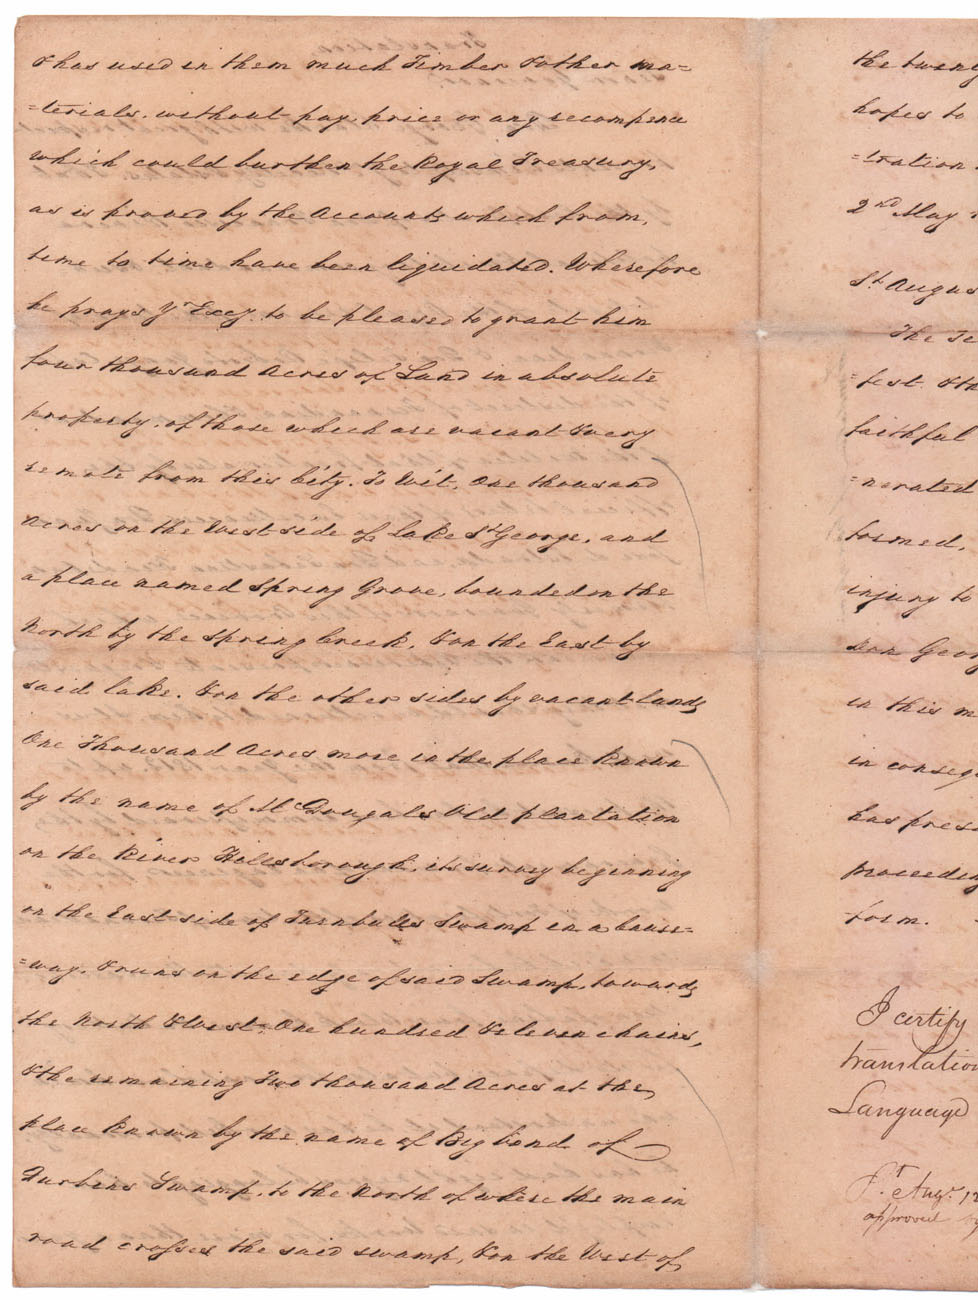 & has used in them much Timber & other ma=
=terials, without pay, price or any recompence
which could burthen the Royal Treasury,
as is proved by the Accounts which from,
time to time have been liquidated. Wherefore
he prays Yr. Excy. to be pleased to grant him
four thousand Acres of Land in absolute
property, of those which are vacant & very
remote from this City. To Wit, One thousand
Acres on the West side of Lake St. George, and
a place named Spring Grove, bounded on the
North by the Spring Creek, & on the East by
said lake. & on the other sides by vacant lands
One Thousand Acres more in the place known
by the name of McDougals Old plantation
on the River Hillsborough, its survey beginning
on the East side of Turnbulls Swamp in a Cause=
=way, & runs on the edge of said Swamp, towards
the North & West One hundred & eleven chains,
& the remaining Two thousand Acres at the
place known by the name of Big bend of
Durbins Swamp, to the North of where the main
road crosses the said swamp, & on the West of
the twen
hopes to
=tration
2nd May
St. Augus
The Te
=fest & th
faithful
=nerated
formed,
injury to
don Geor
in this m
in conseq
has pres
proceedin
form.
I certify
translation
Language
St. Augt. 12
approved